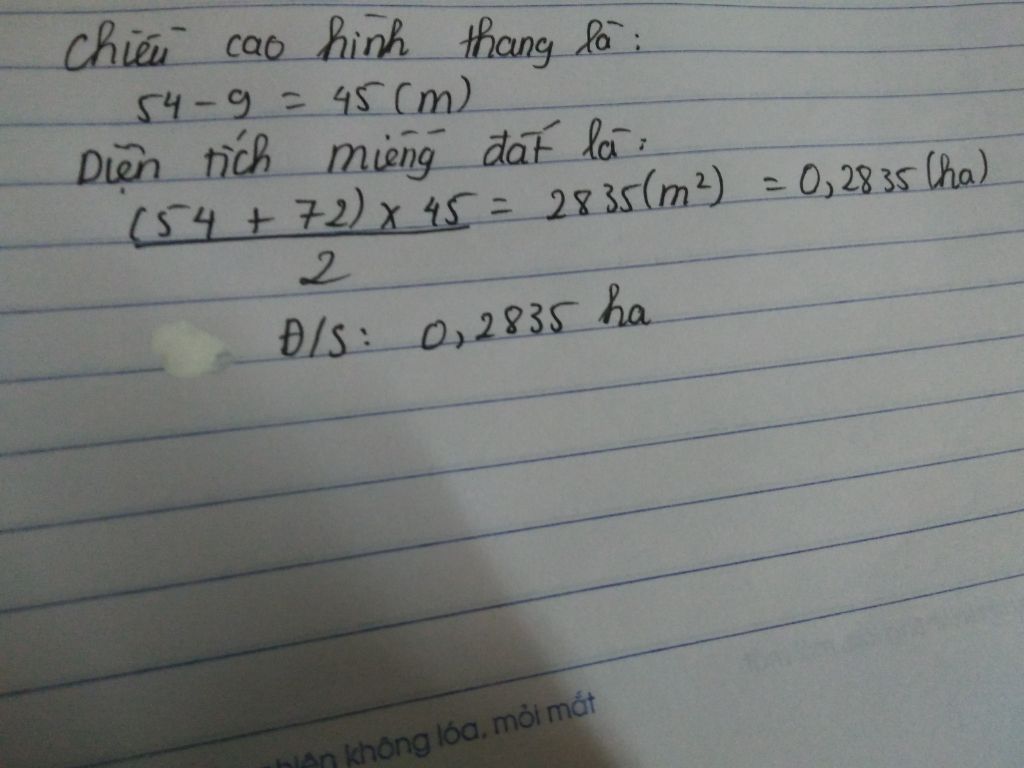 Chiều cao hình thang là:
54 - 9 = 45 (m)
Diện tích miếng đất là:
(54 + 72) x 45 = 2835 (m²) = 0,2835 (ha)
2
Đ/S: 0,2835 ha
không lóa, mỏi mắt